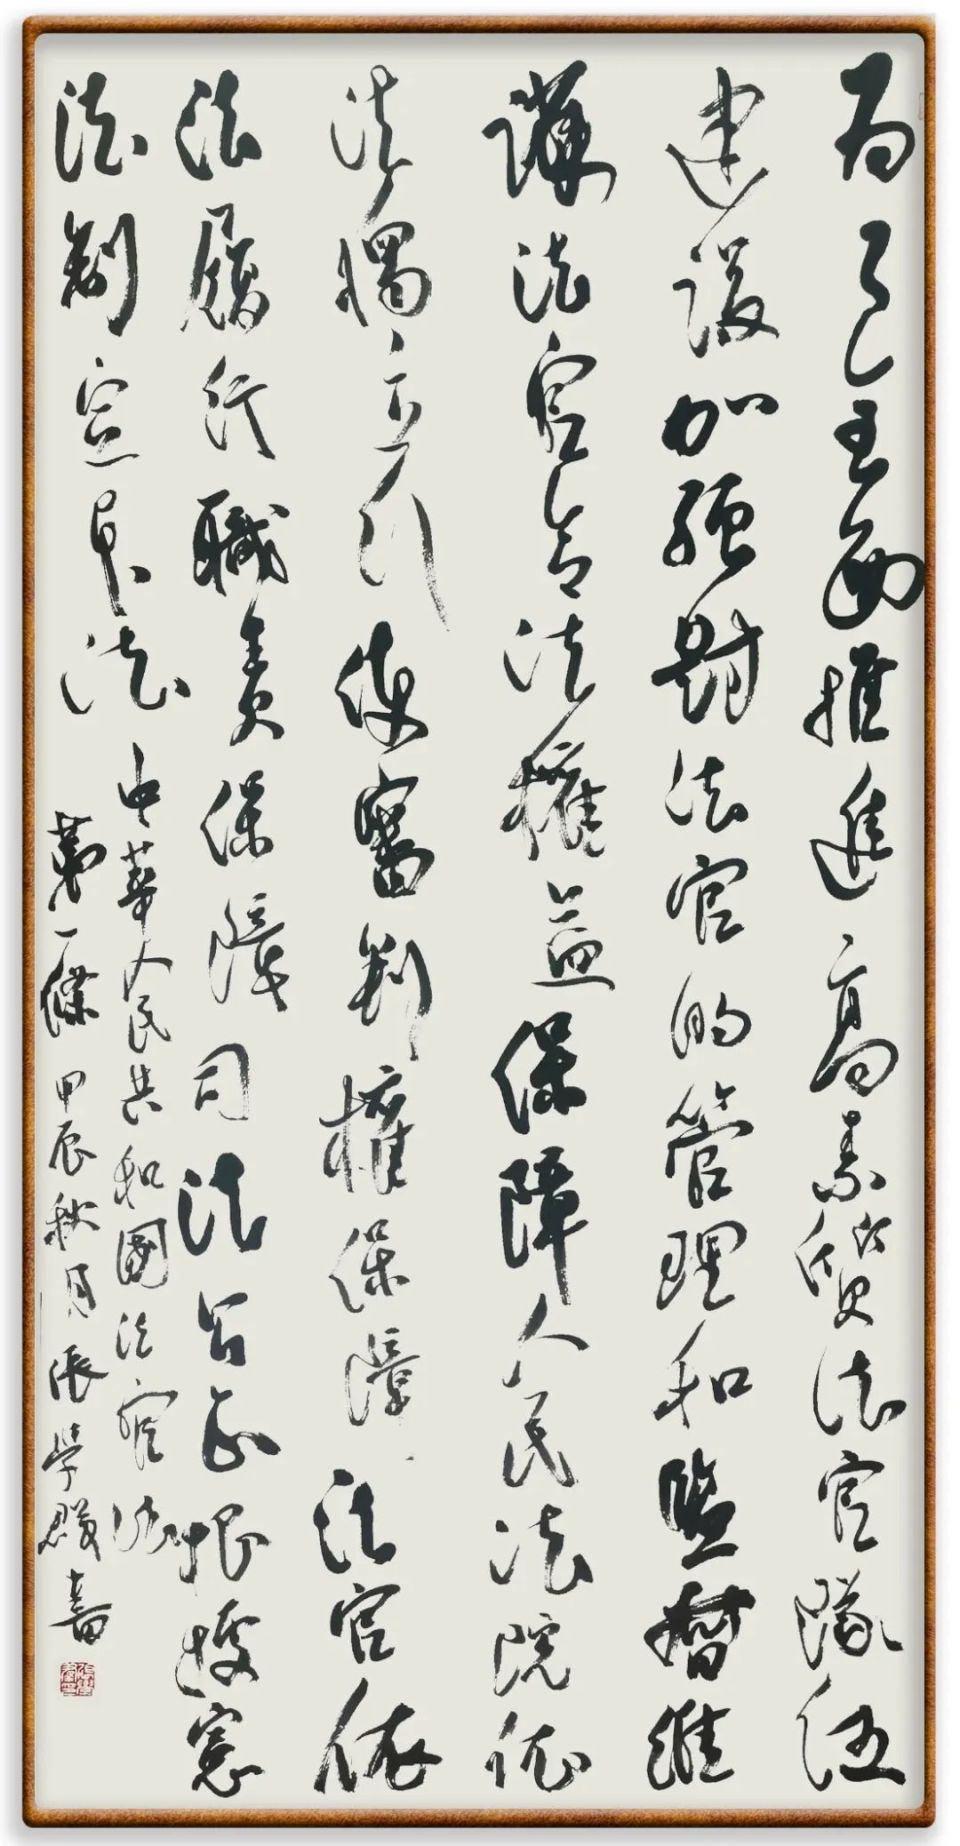 为了全面推进高素质法官队伍
建设加强对法官的管理和监督维
护法官合法权益保障人民法院依
法独立行使审判权保障法官依
法履行职责保障司法公正根据宪
法制定本法
中华人民共和国法官法
第一条 甲辰秋月张学群书